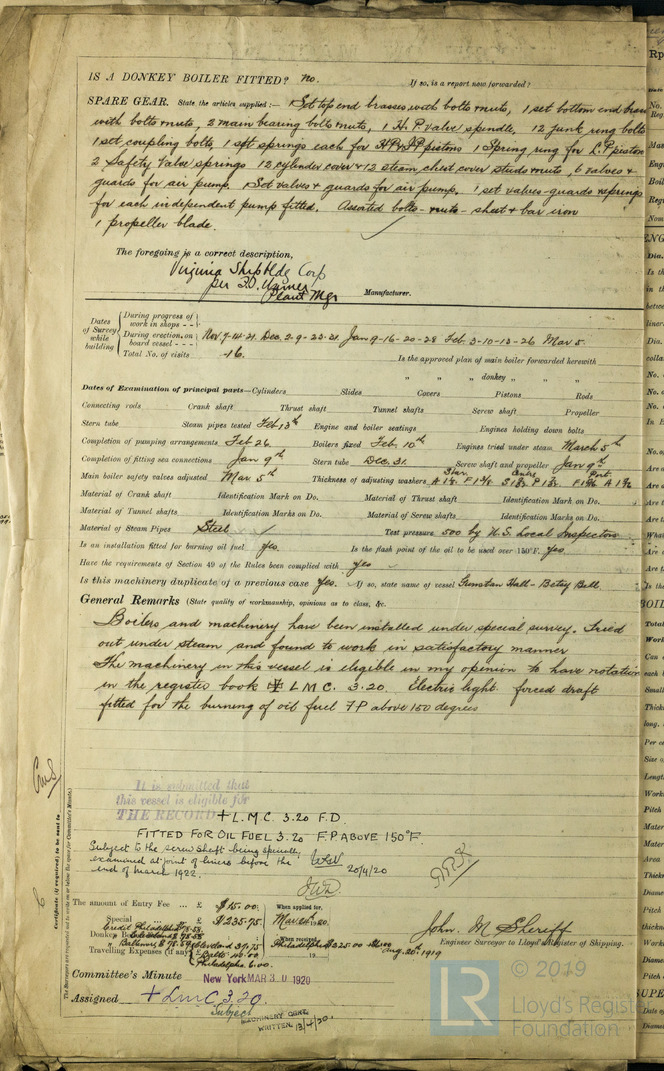 IS A DONKEY BOILER FITTED? No. If so, is a report now forwarded?
SPARE GEAR. State the articles supplied:— 1 Set top end brasses with bolts & nuts, 1 set bottom end brasses
with bolts & nuts, 2 main bearing bolts & nuts, 1 H.P valve spindle, 12 junk ring bolts
1 set coupling bolts, 1 set springs each for HP & IP pistons 1 Spring ring for L.P piston
2 Safety Valve springs 12 cylinder cover & 12 steam chest cover studs & nuts, 6 valves &
guards for air pump. 1 Set valves & guards for air pump. 1 set valves-guards & springs
for each independent pump fitted. Assorted bolts - nuts - sheet & bar iron
1 propeller blade.
The foregoing is a correct description,
Virginia Shipbldg Corp
per
Plant Mgr Manufacturer.
Dates of Survey while building
During progress of work in shops - -
During erection on board vessel - - Nov 7-14-21. Dec. 2-9-23-31. Jan 9-16-20-28 Feb. 3-10-13-26 Mar 5
Total No. of visits 16.
Is the approved plan of main boiler forwarded herewith
" " donkey " " "
Dates of Examination of principal parts—Cylinders Slides Covers Pistons Rods
Connecting rods Crank shaft Thrust shaft Tunnel shafts Screw shaft Propeller
Stern tube Steam pipes tested Feb 13th Engine and boiler seatings Engines holding down bolts
Completion of pumping arrangements Feb 26. Boilers fixed Feb. 10th Engines tried under steam March 5th
Completion of fitting sea connections Jan 9th Stern tube Dec. 31. Screw shaft and propeller Jan 9th
Main boiler safety valves adjusted Mar 5th Thickness of adjusting washers
Material of Crank shaft Identification Mark on Do. Material of Thrust shaft Identification Mark on Do.
Material of Tunnel shafts Identification Marks on Do. Material of Screw shafts Identification Marks on Do.
Material of Steam Pipes Steel Test pressure 500 by U.S. Local Inspectors
Is an installation fitted for burning oil fuel Yes. Is the flash point of the oil to be used over 150°F. Yes
Have the requirements of Section 49 of the Rules been complied with Yes
Is this machinery duplicate of a previous case Yes. If so, state name of vessel Gunston Hall - Betsy Bell
General Remarks (State quality of workmanship, opinions as to class, &c.
Boilers and machinery have been installed under special survey. Tried
out under steam and found to work in satisfactory manner
The machinery in this vessel is elegible in my opinion to have notation
in the register book ✠ L M C. 3.20. Electric light forced draft
fitted for the burning of oil fuel F P above 150 degrees
It is submitted that
this vessel is eligible for
THE RECORD + L.M.C. 3.20 F.D.
FITTED FOR OIL FUEL 3.20 F.P. ABOVE 150°F.
Subject to the screw shaft being specially
examined at joint of liners before the
end of March 1922. 20/4/20
The amount of Entry Fee .. £ $15.00 When applied for,
Special .. £ $235.75
Travelling Expenses (if any) £ Philadelphia. 6.00
John M Sheriff
Engineer Surveyor to Lloyd's Register of Shipping.
Committee's Minute New York MAR 30 1920
Assigned + LMC 3.20.
Subject
MACHINERY CERT.
WRITTEN. 13/4/20.
Certificate (if required) to be sent to
© 2019
LR
Lloyd's Register
Foundation